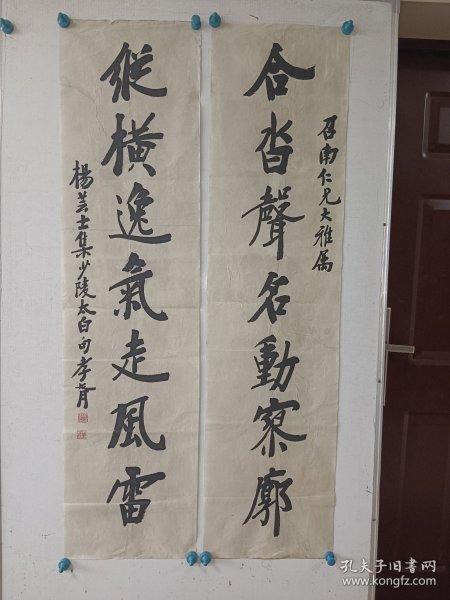 召南仁兄大雅属
合沓聲名動寥廓
縱橫逸氣走風雷
楊芸士集少陵太白句孝胥
孔夫子旧书网
www.kongfz.com